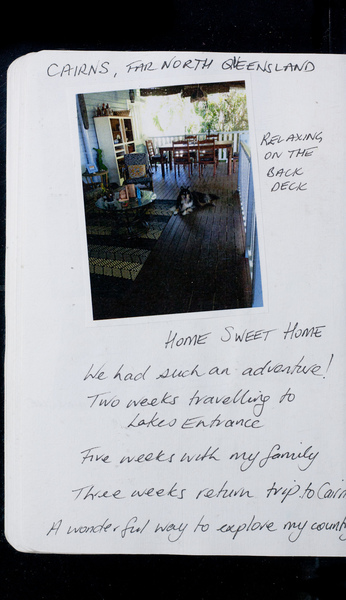 CAIRNS, FAR NORTH QUEENSLAND
RELAXING
ON THE
BACK
DECK
HOME SWEET HOME
We had such an adventure!
Two weeks travelling to
Lakes Entrance
Five weeks with my family
Three weeks return trip to Cairn
A wonderful way to explore my country